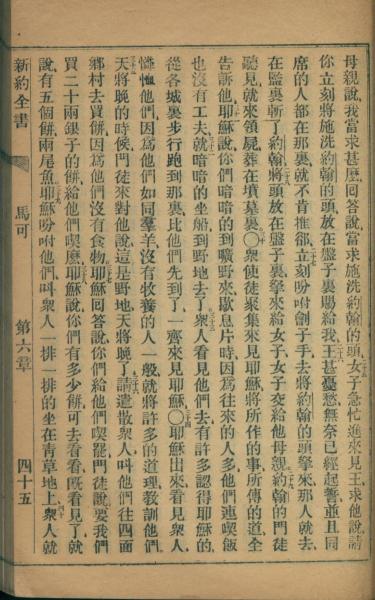 母親說、我當求甚麼、回答說、當求施洗約翰的頭、女子急忙進來見王、求他說、請
你立刻將施洗約翰的頭、放在盤子裏賜給我、王甚憂愁、無奈已經起誓、並且同
席的人、都在那裏、就不肯推卻、立刻吩咐劊子手、去將約翰的頭拏來、那人就去、
在監裏斬了約翰、將頭放在盤子裏、拏來給女子、女子交給他母親、約翰的門徒
聽見、就來領屍、葬在墳墓裏、〇眾使徒聚集來見耶穌、將所作的事、所傳的道、全
告訴他、耶穌說、你們暗暗的到曠野來歇息片時、因爲往來的人多、他們連喫飯
也沒有工夫、就暗暗的坐船到野地去了、眾人看見他們去、有許多認得耶穌的、
從各城裏步行、跑到那裏、比他們先到了、一齊來見耶穌、〇耶穌出來看見眾人、
憐恤他們、因爲他們如同羣羊、沒有牧養的人一般、就將許多的道理敎訓他們、
天將晚的時候、門徒來對他說、這是野地、天將晚了、請遣散眾人、叫他們往四面
鄉村去買餅、因爲他們沒有食物、耶穌回答說、你們給他們喫罷、門徒說、要我們
買二十兩銀子的餅、給他們喫麼、耶穌說、你們有多少餅、可去看看、旣看見了、就
說、有五個餅、兩尾魚、耶穌吩咐他們、叫眾人一排一排的、坐在靑草地上、眾人就
新約全書 馬可 第六章 四十五